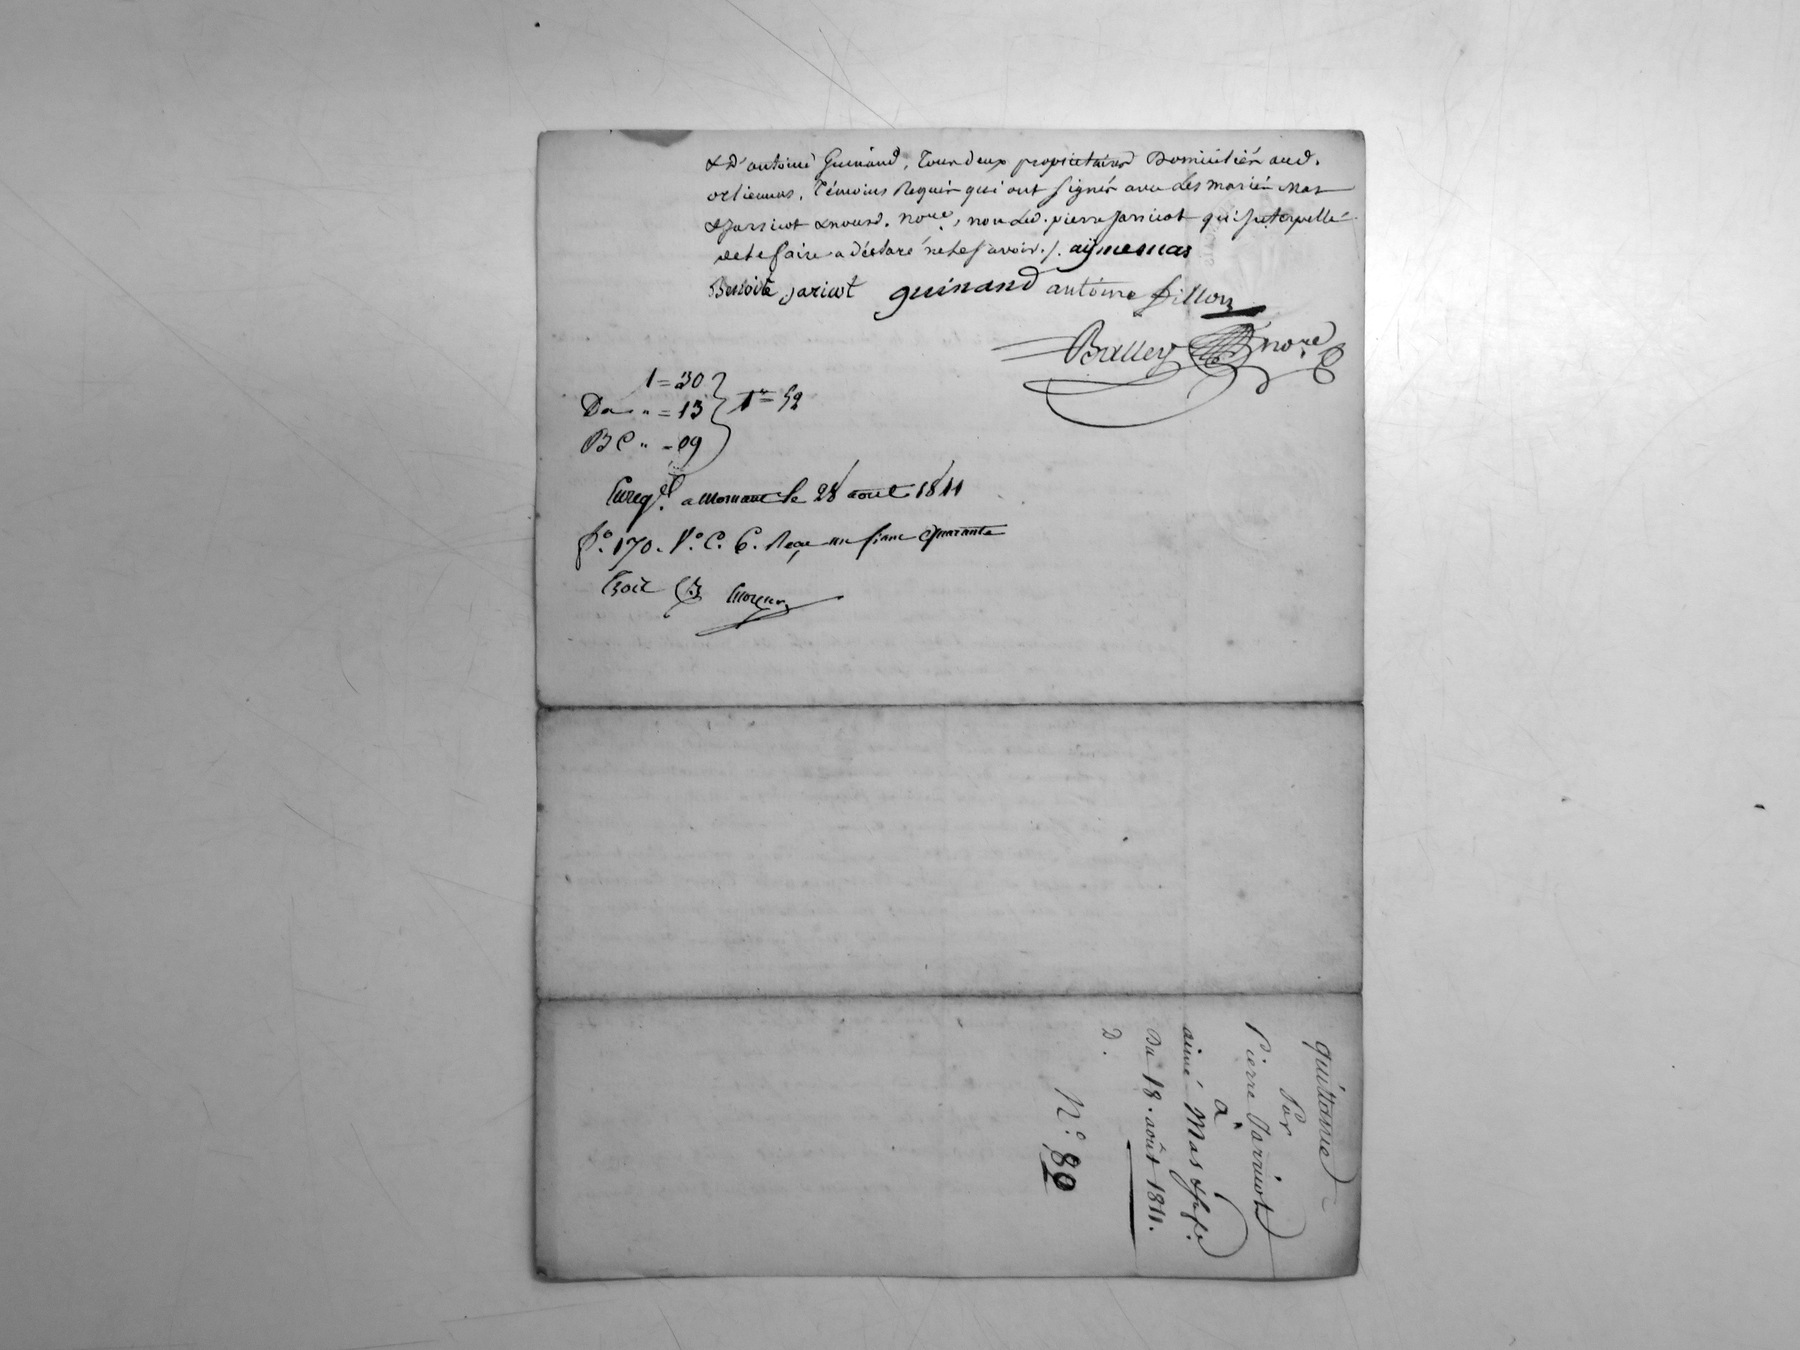 & d'antoine Guinand, tous deux propriétaires Domiciliés aud.
orliennas, témoins Requis qui ont signés avec Les mariés Mas
& Jarricot & nousd. no.re, non Led. pierre Jarricot qui Interpellé
de le faire a déclaré ne le savoir ./. aymé mas
Benoite jaricot guinand antoine fillon
Balley no.re
1 = 30
Do " = 13 1 = 52
B C " = 09
Enreg.é a Mornant le 28 aout 1811
f.° 170. V.° C. 6. Reçu un franc quarante
trois
quittance
Par
Pierre Jarricot
à
aimé Mas &
Du 18. août 1811.
D.
N.° 80